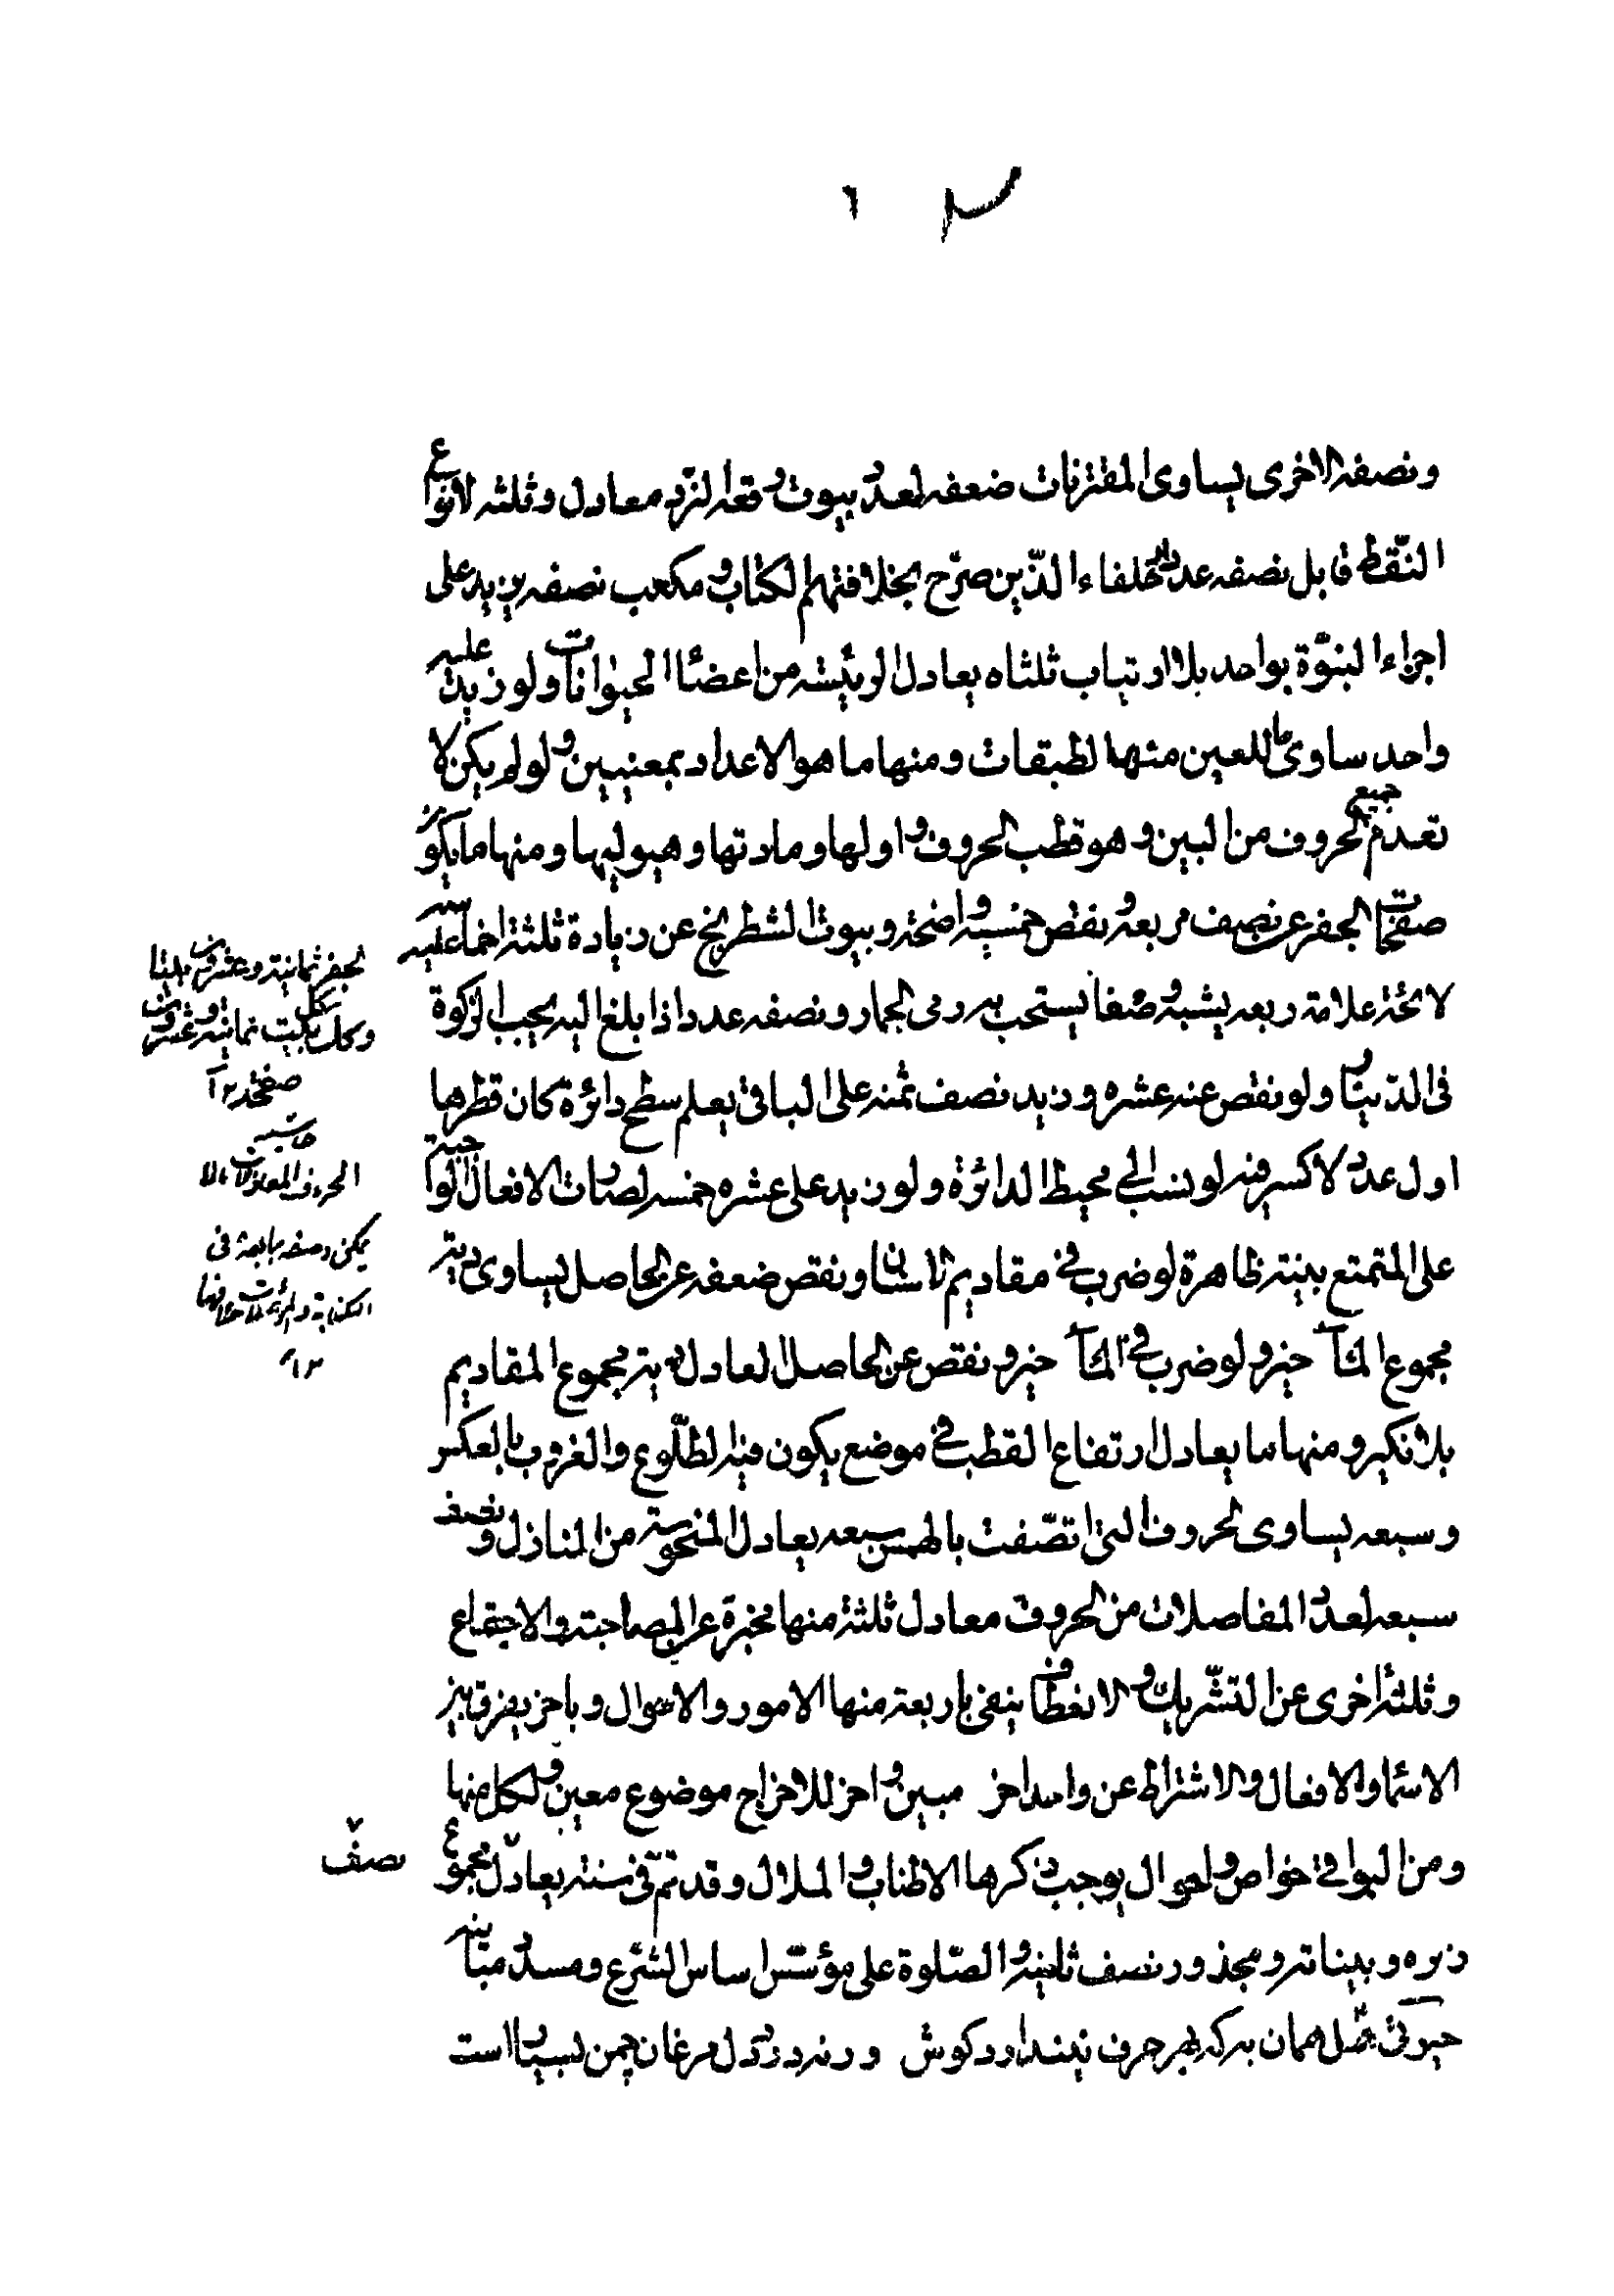 ونصفه الاخرى يساوى المقترنات ضعفه لعدد بيوت رقعه النرد معادل وثلثه لانواع
النقط قابل نصفه عدد الخلفاء الذين صرح بخلافتهم الكتاب ومكعب نصفه يزيد على
اجزاء النبوة بواحد بلا ارتياب ثلثاه يعادل الرئيسه من اعضاء الحيوانات ولو زيد عليه
واحد ساوى ما للعين منها الطبقات ومنها ما هو الاعداد بمعنيين ولو لم يكن لا
نعدم جميع الحروف من البين وهو قطب الحروف واولها ومادتها وهيوليها ومنها ما يكون
صفحات الجفر عن نصف مربعه ونقص خمسيه واضحة وبيوت الشطرنج عن زيادة ثلثة اخماسه عليه
لائحة علامة ربعه يشبه وضعا يستحب به رمى الجمار ونصفه عدد اذا بلغ اليه يجب الزكوة
فى الدينار ولو نقص عنه عشره وزيد نصف ثمنه على الباقى يعلم سطح دائرة كان قطرها
اول عدد لا كسر فيه لو نسب الى محيط الدائرة ولو زيد على عشره خمسه لصارت الافعال الواجبة
على المتمتع بينة ظاهرة لو ضرب فى مقاديم الاسنان ونقص ضعفه عن الحاصل يساوى دية
مجموع المآخير ولو ضرب فى المآخير ونقص عن الحاصل العادل دية مجموع المقاديم
بلا نكير ومنها ما يعادل ارتفاع القطب فى موضع يكون فيه الطلوع والغروب بالعكس
وسبعه يساوى الحروف التى اتصفت بالهمس سبعه يعادل المنحوسة من المنازل ونصف
سبعه لعدد المفاصلات من الحروف معادل ثلثة منها مخبرة عن المصاحبة والاجتماع
وثلثة اخرى عن التشريك والانعطاف وينفى باربعة منها الامور والاحوال وباخر يفرق بين
الاسماء والافعال والاشتراط عن واحد اخر مبين واخر للاخراج موضوع معين ولكل منها
ومن البواقى خواص واحوال يوجب ذكرها الاطناب والملال وقد تم فى سنة يعادل مجموع
نصف
زبره وبيناته ومجذور نصف ثانيه والصلوة على مؤسس اساس الشرع ومسدد مبانيه
حيرتى بس همان به كه بهر حرف نيندازد كوش ورنه درد دل مرغان چمن بسيار است
الجفر ثمانية وعشرون بابا
وكل بيت ثمانية وعشرون
صفحة
حاشيه